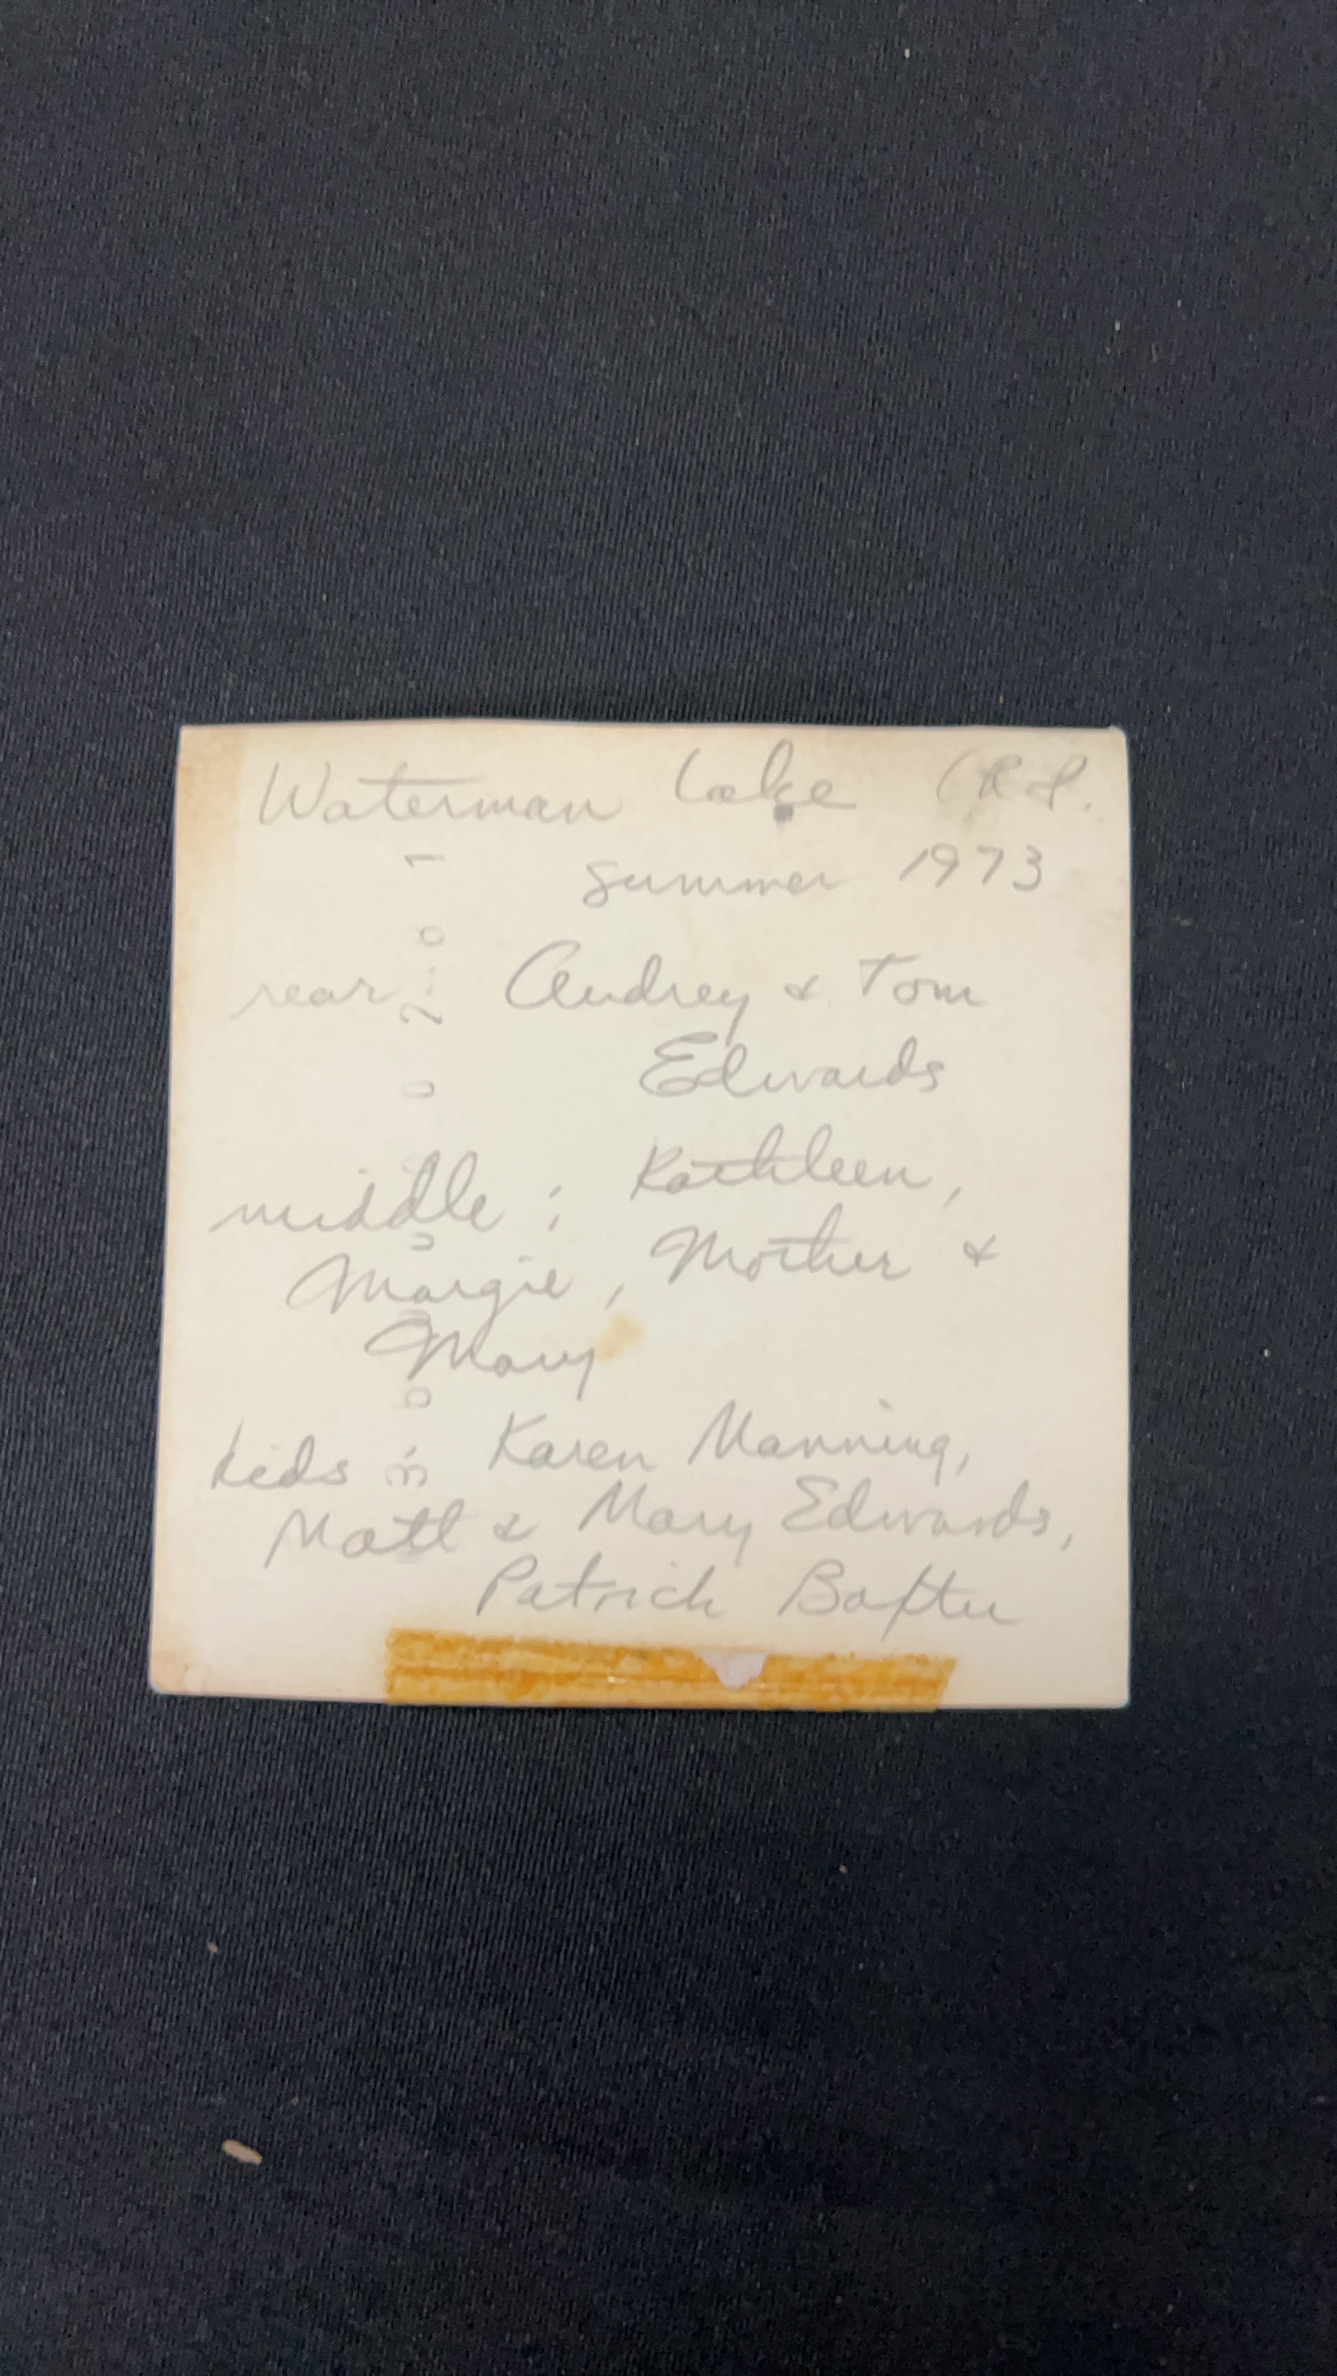 Waterman Lake (R.I.
summer 1973
rear: Audrey & Tom
Edwards
middle: Kathleen,
Margie, Mother &
Mary
kids: Karen Manning,
Matt & Mary Edwards,
Patrick